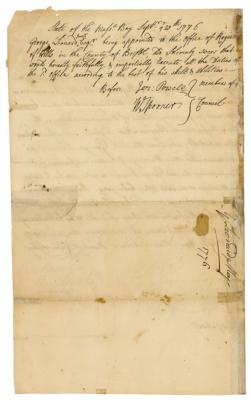 State of the Massa Bay Septr 28th 1776
George Leonard Esqr being appointed to the Office of Register
of Deeds in the County of Bristol Do Solemnly Swear that
honestly faithfully & impartially Execute all the Duties of
the Sd Office according to the best of his Skill & Abilities
Before Jer. Powell members of
W. Spooner Counsel
G Leonard
1776